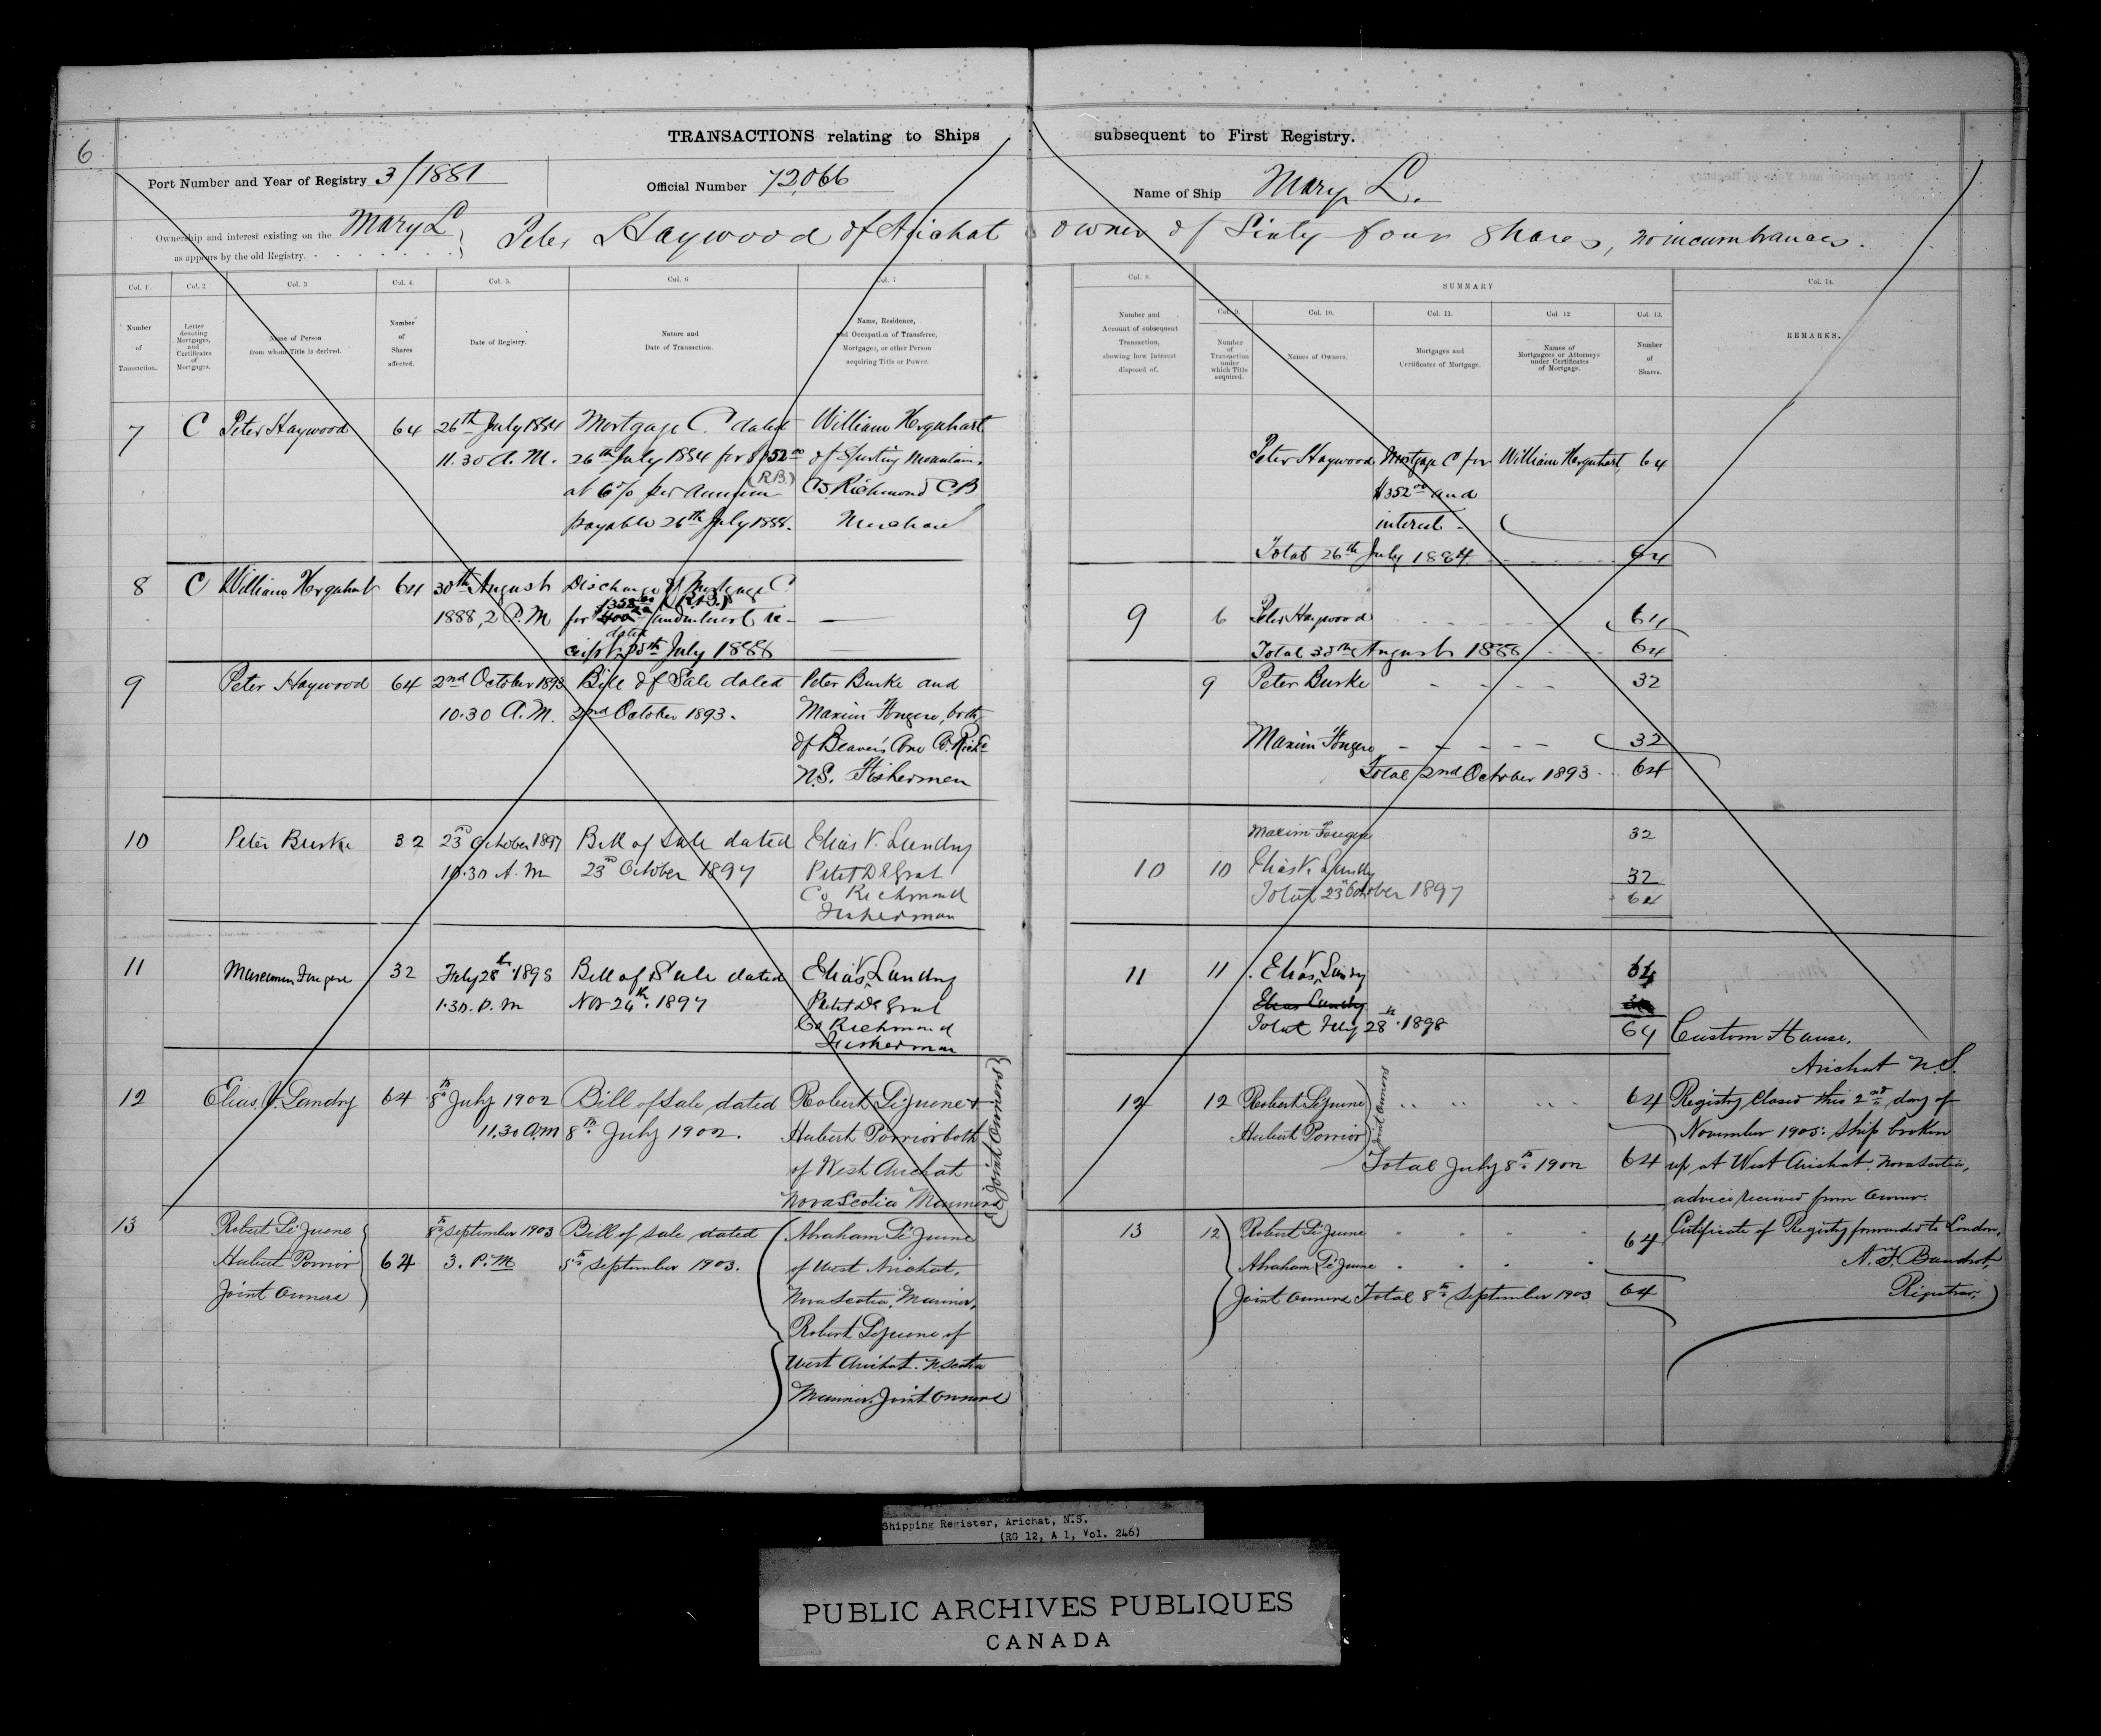 6
TRANSACTIONS relating to Ships subsequent to First Registry.
Port Number and Year of Registry 3/1881 Official Number 72,066 Name of Ship Mary L.
Ownership and interest existing on the Mary L
as appears by the old Registry. Peter Haywood of Arichat owner of Sixty four Shares, no incumbrances.
Col. 1. Col. 2 Col. 3 Col. 4. Col. 5. Col. 6 Col. 7
Number of Transaction.
Letter denoting Mortgages, and Certificates of Mortgages.
Name of Person from whom Title is derived.
Number of Shares affected.
Date of Registry.
Nature and Date of Transaction.
Name, Residence, and Occupation of Transferee, Mortgagee, or other Person acquiring Title or Power.
7 C Peter Haywood 64 26th July 1884 Mortgage C. dated William Urquhart
11.30 A.M. 26th July 1884 for $352 00 of Sporting Mountain,
(R.B.)
at 6% per annum Co. Richmond C B
payable 26th July 1888. Merchant
8 C William Urquhart 64 30th August Discharge of Mortgage C
1888, 2 P.M for $352 00 (R.B.) and interest re-
dated
ceipt July 1888
9 Peter Haywood 64 2nd October 1893 Bill of Sale dated Peter Burke and
10.30 A.M. 2nd October 1893. Maxim Fougere, both
of Beaver's Cove Co. Richd
N.S. Fishermen
10 Peter Burke 32 23rd October 1897 Bill of Sale dated Elias V. Landry
10.30 A.M 23rd October 1897 Petit De Grat
Co Richmond
Fisherman
11 Fougere 32 July 28th 1898 Bill of Sale dated Elias V Landry
1.30. P. M Nov 24th. 1897 Petit De Grat
Co Richmond
Fisherman
12 Elias V. Landry 64 8th July 1902 Bill of Sale dated Robert LeJeune &
11.30 A.M 8th July 1902. Hubert Porrior both
of West Arichat
Nova Scotia Mariners
(Joint Owners)
13 Robert LeJeune 8th September 1903 Bill of Sale dated Abraham LeJeune
Hubert Porrior 64 3. P.M 5th September 1903. of West Arichat,
Joint Owners Nova Scotia, Mariner,
Robert LeJeune of
West Arichat. N. Scotia
Mariner. Joint Owners
Col. 8. SUMMARY Col. 14.
Col. 9. Col. 10. Col. 11. Col. 12 Col. 13.
Number and Account of subsequent Transaction, showing how Interest disposed of.
Number of Transaction under which Title acquired.
Names of Owners.
Mortgages and Certificates of Mortgage.
Names of Mortgagees or Attorneys under Certificates of Mortgage.
Number of Shares.
REMARKS.
Peter Haywood Mortgage C for William Urquhart 64
$352 00 and
interest
Total 26th July 1884 64
9 6 Peter Haywood 64
Total 30th August 1888 64
9 Peter Burke 32
Maxim Fougere 32
Total 2nd October 1893 64
Maxim Fougere 32
10 10 Elias V. Landry 32
Total 23rd October 1897 64
11 11 Elias V Landry 64
Elias Landry
Total July 28th. 1898 64
12 12 Robert LeJeune 64
Hubert Porrior
Joint Owners
Total July 8th 1902 64
13 12 Robert LeJeune 64
Abraham LeJeune
Joint Owners Total 8th September 1903 64
Custom House,
Arichat N.S.
Registry Closed this 2nd day of
November 1905: Ship broken
up at West Arichat, Nova Scotia,
advice received from Owner.
Certificate of Registry forwarded to London.
Registrar.
Shipping Register, Arichat, N.S.
(RG 12, A 1, Vol. 246)
PUBLIC ARCHIVES PUBLIQUES
CANADA